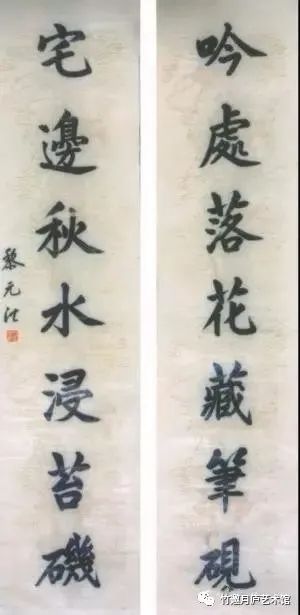 吟處落花藏筆硯
宅邊秋水浸苔磯
黎元洪
竹盦月庐艺术馆